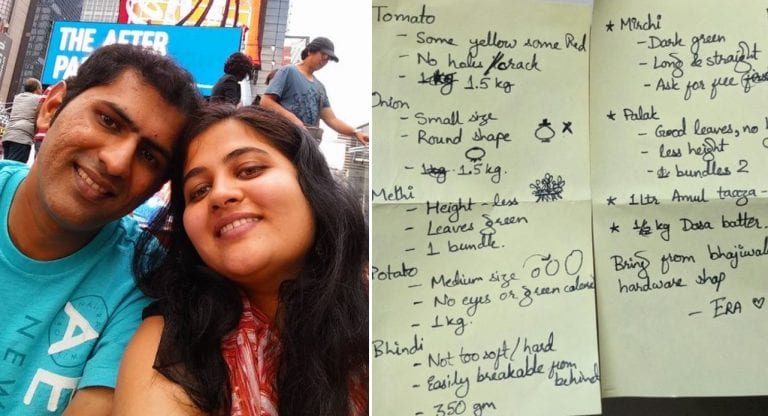 THE AFTER
PA
AE
NEW
Tomato
- Some yellow some Red
- No holes / crack
- 1kg 1.5 kg
Onion
- Small size
- Round shape
- 1kg 1.5 kg.
Methi
- Height - less
- Leaves green
- 1 bundle.
Potato
- Medium size
- No eyes or green colored
- 1 kg.
Bhindi
- Not too soft / hard
- Easily breakable from behind
- 350 gm
* Mirchi
- Dark green
- Long & straight
- Ask for free
* Palak
- Good leaves, no
- less height
- bundles 2
* 1 ltr Amul taaza -
* 1/2 kg Dosa batter.
Bring from bhajiwala
hardware shop
- ERA ♡